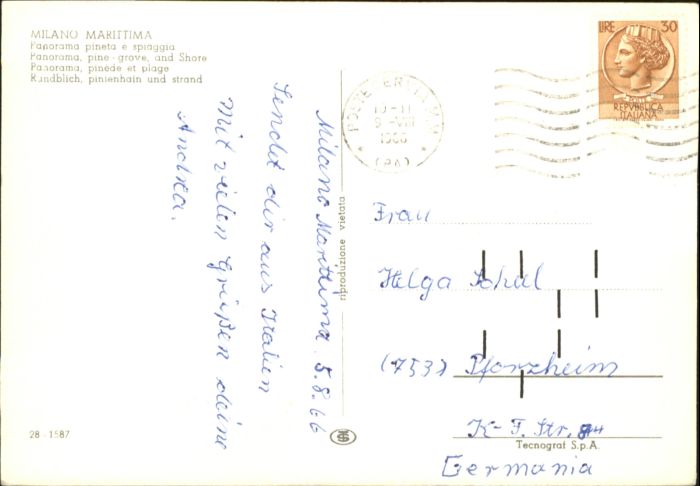 MILANO MARITTIMA
Panorama pineta e spiaggia
Panorama, pine-grove, and Shore
Panorama, pinède et plage
Rundblich, pinienhain und strand
LIRE 30
REPVBBLICA
ITALIANA
10-11
9-VIII
1966
(RA)
Milano Marittima. 5.8.66
Sendet dir aus Italien
mit vielen Grüßen deine
Andrea.
riproduzione vietata
Frau
Helga
(753) Pforzheim
K-F. Str.
Germania
28-1587
Tecnograf S.p.A.